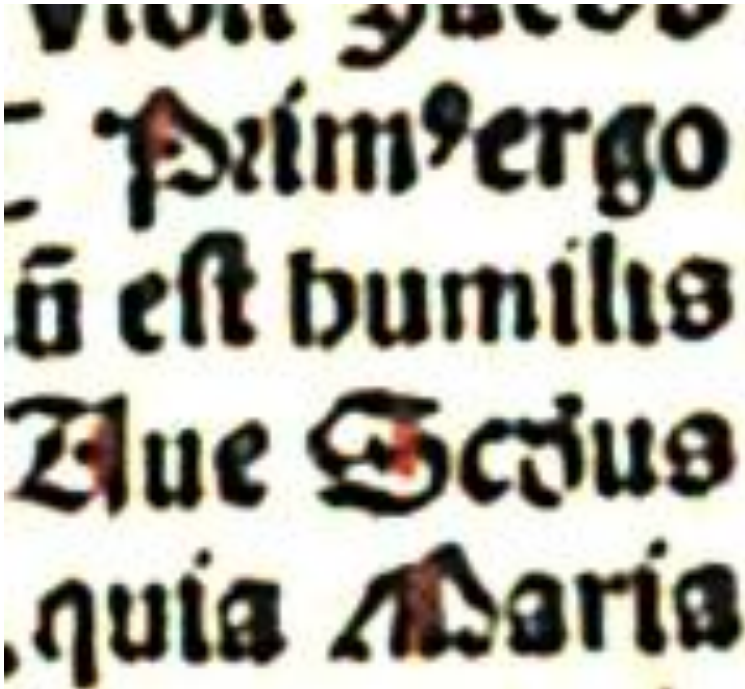 Jacob
Primꝰ ergo
ū eſt humilis
Aue Scdus
quia Maria